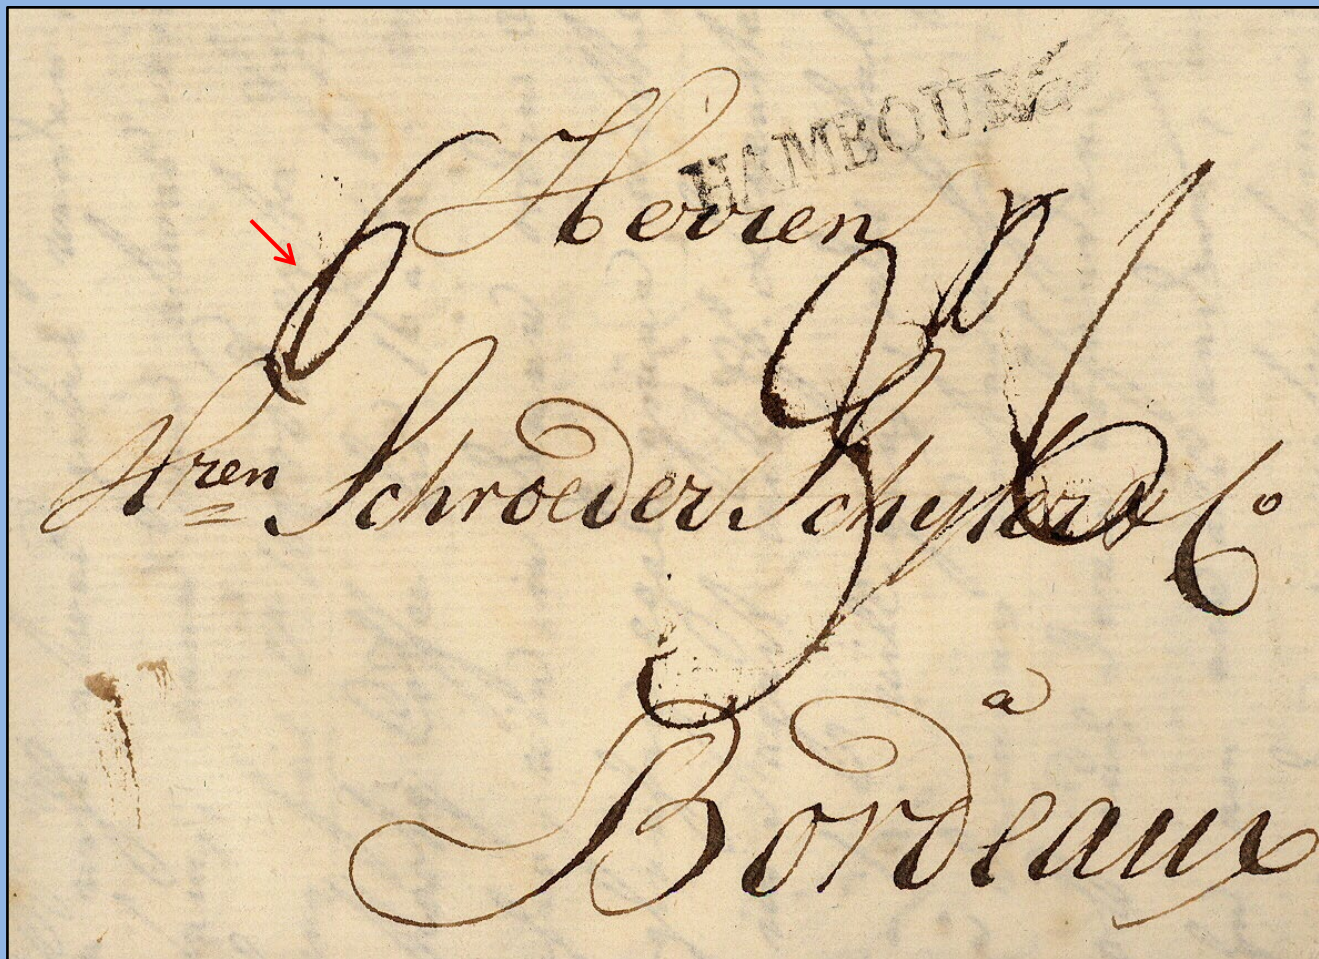 HAMBOURG
Herren
Hren Schroeder Schyler & Co
a
Bordeaux